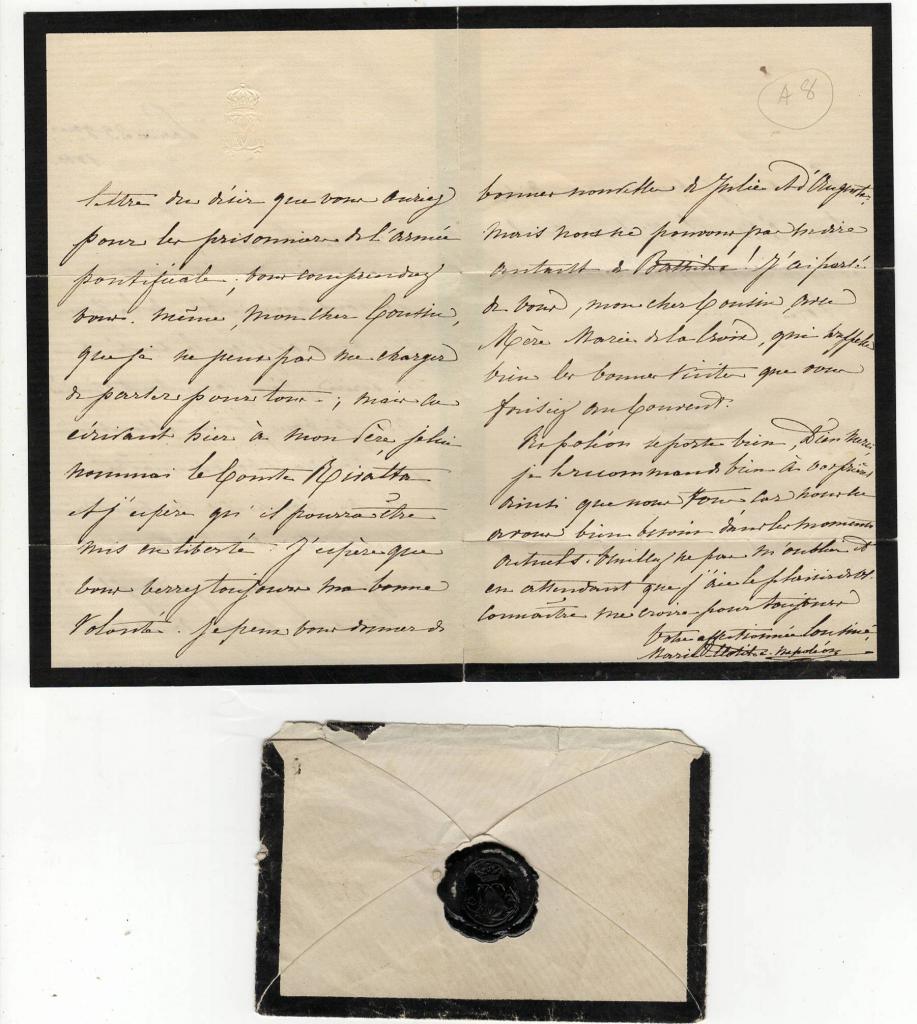 A 8
lettre du désir que vous auriez
pour les prisonniers de l'armée
pontificale; vous comprendrez
vous-même, mon cher Cousin,
que je ne peux pas me charger
de parler pour tous; mais en
écrivant hier à mon Père je lui
nommai le Comte Rivalta
et j'espère qu'il pourra être
mis en liberté. J'espère que
vous verrez toujours ma bonne
volonté. Je peux vous donner de
bonnes nouvelles de Julie et d'Auguste,
mais nous ne pouvons pas en dire
autant de ! J'ai parlé
de vous, mon cher Cousin, avec
Mère Marie de la Croix, qui se rappelle
bien les bonnes visites que vous
faisiez au Couvent.
Napoléon se porte bien, Dieu merci
je le recommande bien à vos prières
ainsi que nous tous car nous en
avons bien besoin dans les moments
actuels. Veuillez ne pas m'oublier et
en attendant que j'aie le plaisir de vs.
connaître me croire pour toujours
Votre affectionnée Cousine
Marie Clotilde Napoléon